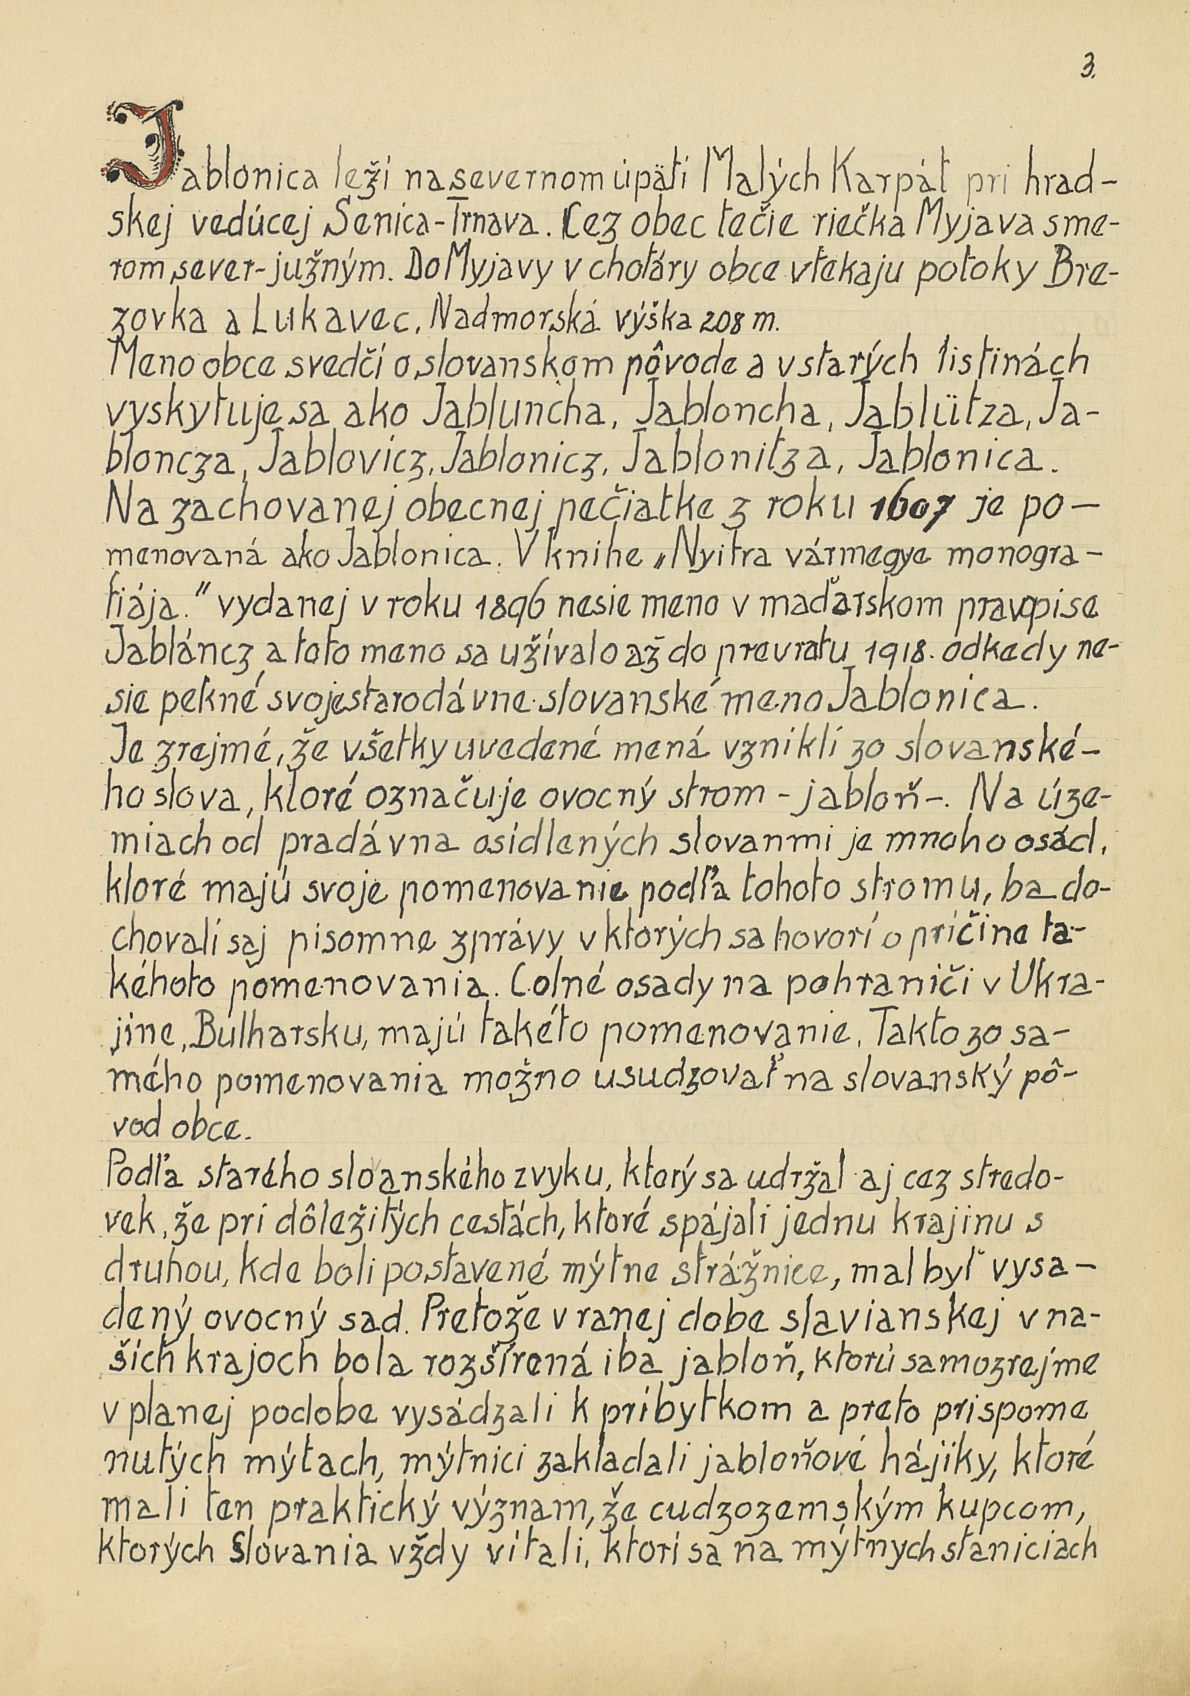 3.
Jablonica leží na severnom úpätí Malých Karpát pri hrad-
skej vedúcej Senica-Trnava. Cez obec tečie riečka Myjava sme-
rom sever-južným. Do Myjavy v chotáry obce vtekaju potoky Bre-
zovka a Lukavec. Nadmorská výška 208 m.
Meno obce svedčí o slovanskom pôvode a v starých listinách
vyskytuje sa ako Jabluncha, Jabloncha, Jablütza, Ja-
bloncza, Jablovicz, Jablonicz, Jablonitza, Jablonica.
Na zachovanej obecnej pečiatke z roku 1607 je po-
menovaná ako Jablonica. V knihe „Nyitra vármegye monogra-
fiája." vydanej v roku 1896 nesie meno v maďarskom pravopise
Jabláncz a toto meno sa užívalo až do prevratu 1918. odkedy ne-
sie pekné svoje starodávne slovanské meno Jablonica.
Je zrejmé, že všetky uvedené mená vznikli zo slovanské-
ho slova, ktoré označuje ovocný strom - jabloň-. Na úze-
miach od pradávna osídlených slovanmi je mnoho osád,
ktoré majú svoje pomenovanie podľa tohoto stromu, ba do-
chovali saj pisomne zprávy v ktorých sa hovorí o príčine ta-
kéhoto pomenovania. Colné osady na pohraničí v Ukra-
jine, Bulharsku, majú takéto pomenovanie. Takto zo sa-
mého pomenovania možno usudzovať na slovanský pô-
vod obce.
Podľa starého sloanského zvyku, ktorý sa udržal aj cez stredo-
vek, že pri dôležitých cestách, ktoré spájali jednu krajinu s
druhou, kde boli postavené mýtne strážnice, mal byť vysa-
dený ovocný sad. Pretože v ranej dobe slavianskej v na-
šich krajoch bola rozšírená iba jabloň, ktorú samozrejme
v planej podobe vysádzali k príbytkom a preto prispome
nutých mýtach, mýtnici zakladali jabloňové hájiky, ktoré
mali ten praktický význam, že cudzozemským kupcom,
ktorých Slovania vždy vítali, ktorí sa na mýtnych staniciach